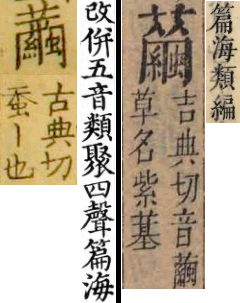 篇海類編
吉典切音繭
草名紫基
改併五音類聚四聲篇海
繭
古典切
蚕丨也